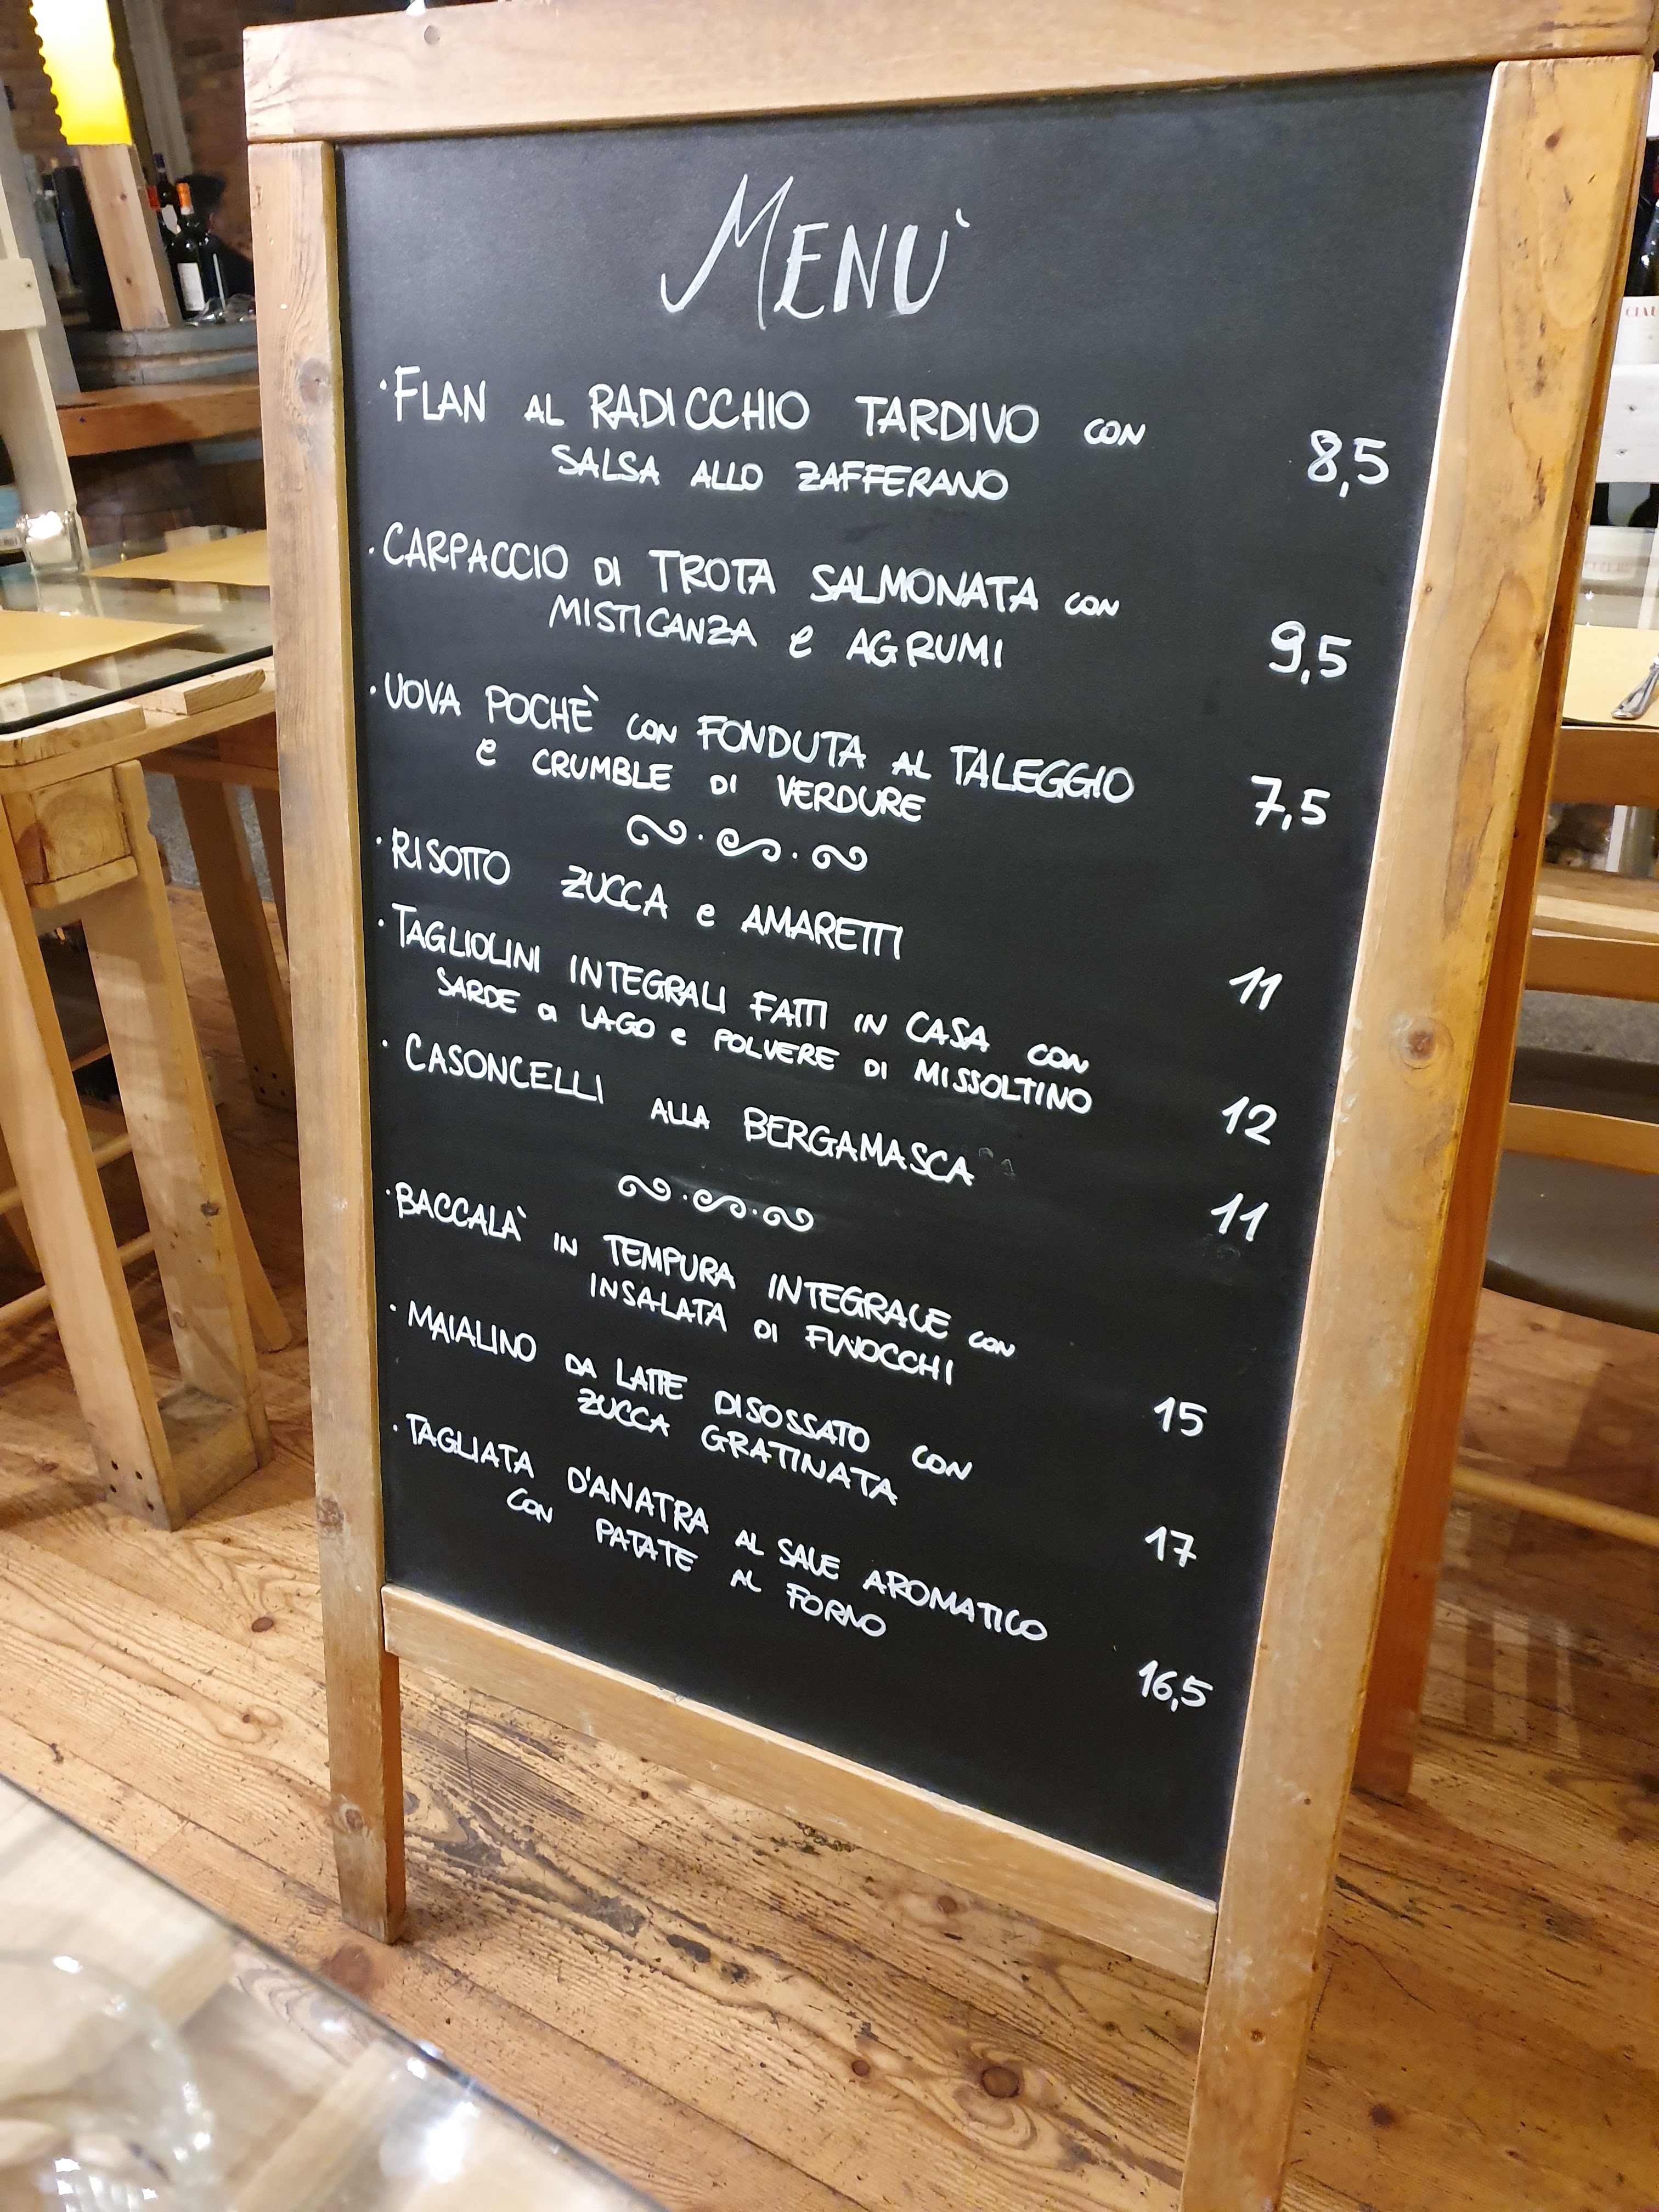 MENÙ
· FLAN AL RADICCHIO TARDIVO CON
SALSA ALLO ZAFFERANO 8,5
· CARPACCIO DI TROTA SALMONATA CON
MISTICANZA e AGRUMI 9,5
· UOVA POCHÈ CON FONDUTA AL TALEGGIO
e CRUMBLE DI VERDURE 7,5
· RISOTTO ZUCCA e AMARETTI 11
· TAGLIOLINI INTEGRALI FATTI IN CASA CON
SARDE DI LAGO e POLVERE DI MISSOLTINO 12
· CASONCELLI ALLA BERGAMASCA 11
· BACCALÀ IN TEMPURA INTEGRALE CON
INSALATA DI FINOCCHI 15
· MAIALINO DA LATTE DISOSSATO CON
ZUCCA GRATINATA 17
· TAGLIATA D'ANATRA AL SALE AROMATICO
CON PATATE AL FORNO 16,5